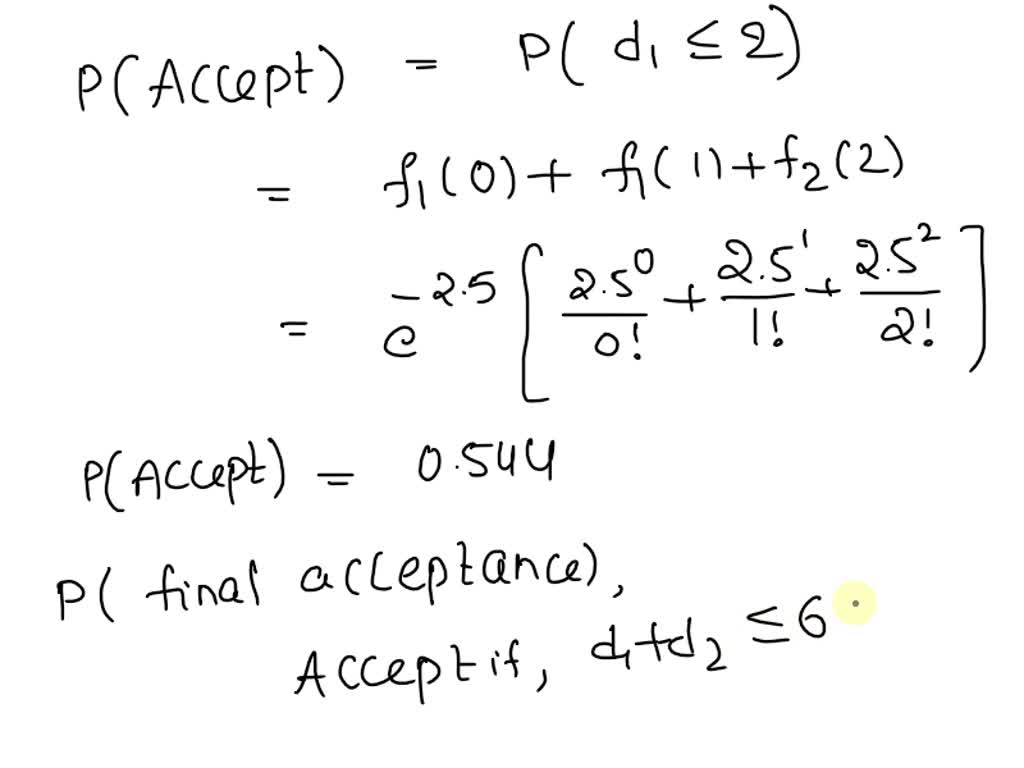 P(Accept) = P( d₁ ≤ 2)
= f₁(0) + f₁(1) + f₂(2)
= e^-2.5 [ 2.5^0/0! + 2.5^1/1! + 2.5^2/2! ]
P(Accept) = 0.544
P( final acceptance),
Accept if, d₁+d₂ ≤ 6